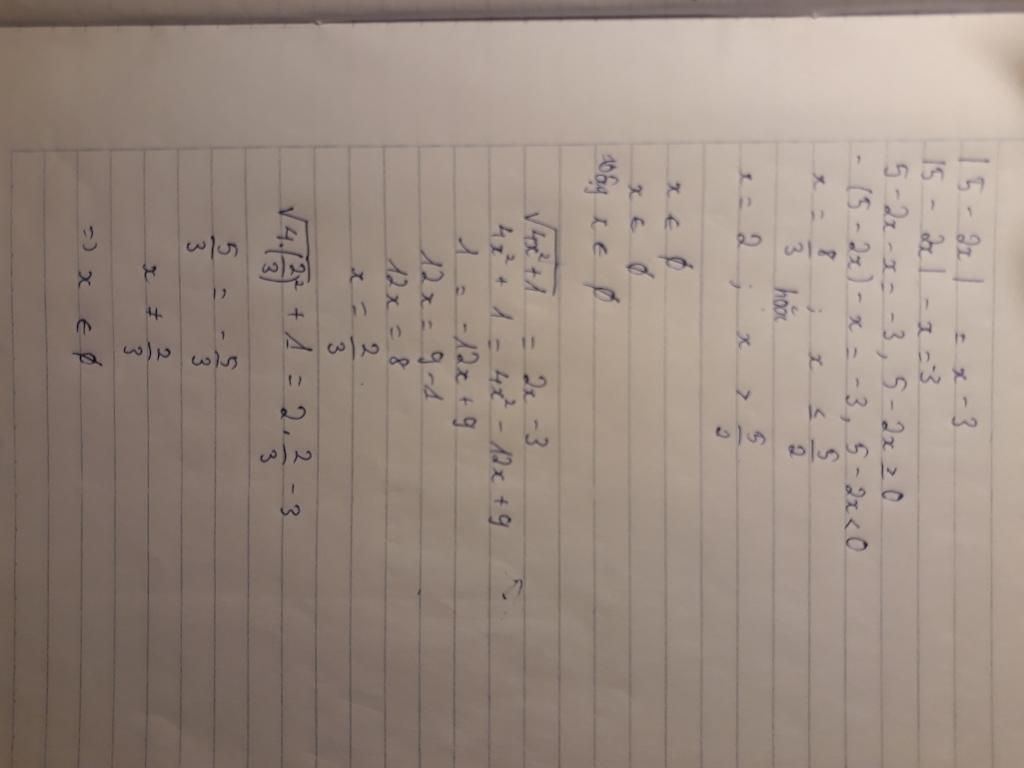 |5 - 2x| = x - 3
|5 - 2x| - x = -3
5 - 2x - x = -3, 5 - 2x ≥ 0
- (5 - 2x) - x = -3, 5 - 2x < 0
x = 8/3 ; x ≤ 5/2
hoặc
x = 2 ; x > 5/2
x ∈ ∅
x ∈ ∅
vậy x ∈ ∅
√4x²+1 = 2x - 3
4x² + 1 = 4x² - 12x + 9
1 = -12x + 9
12x = 9 - 1
12x = 8
x = 2/3
√4.(2/3)² + 1 = 2. 2/3 - 3
5/3 = - 5/3
x ≠ 2/3
=> x ∈ ∅